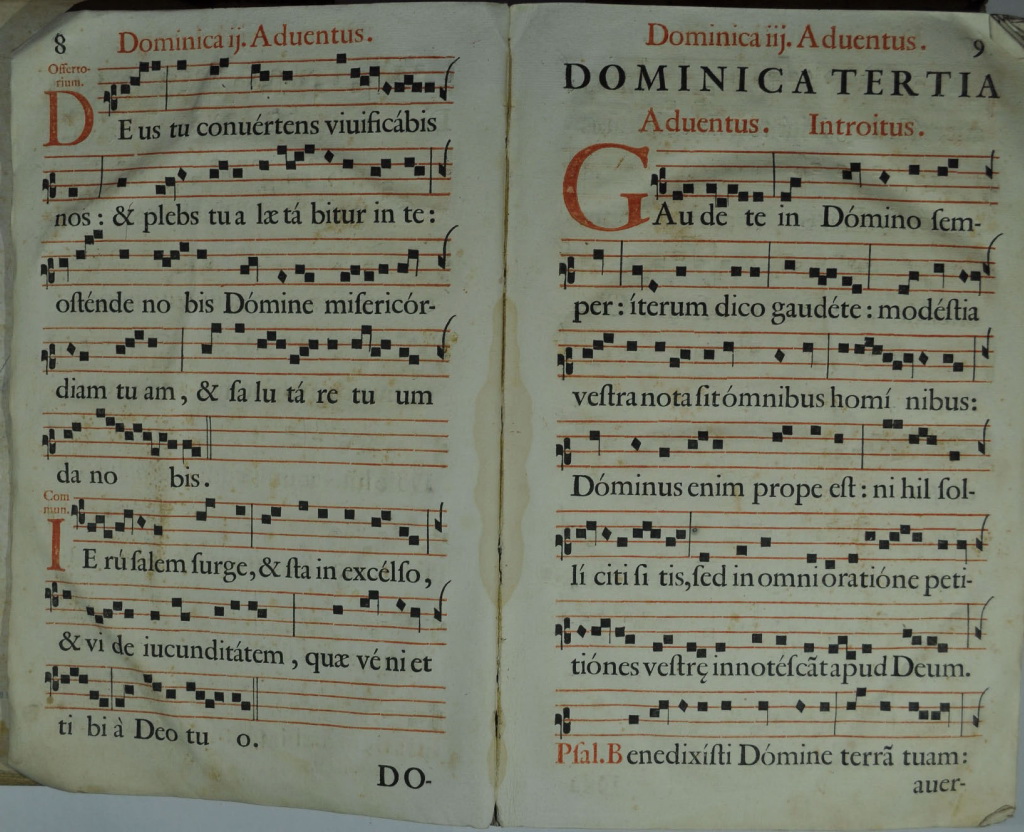 8 Dominica ij. Aduentus.
Offerto-
rium.
DEus tu conuértens viuificábis
nos: & plebs tua lætá bitur in te:
osténde no bis Dómine misericór-
diam tu am, & sa lu tá re tu um
da no bis.
Com
mun.
IErúsalem surge, & sta in excélso,
& vi de iucunditátem, quæ vé ni et
ti bi à Deo tu o.
DO-
Dominica iij. Aduentus. 9
DOMINICA TERTIA
Aduentus. Introitus.
GAu de te in Dómino sem-
per: íterum dico gaudéte: modéstia
vestra nota sit ómnibus homí nibus:
Dóminus enim prope est: ni hil sol-
lí citi si tis, sed in omni oratióne peti-
tiónes vestrę innotéscãt apud Deum.
Psal. Benedixísti Dómine terrã tuam:
auer-